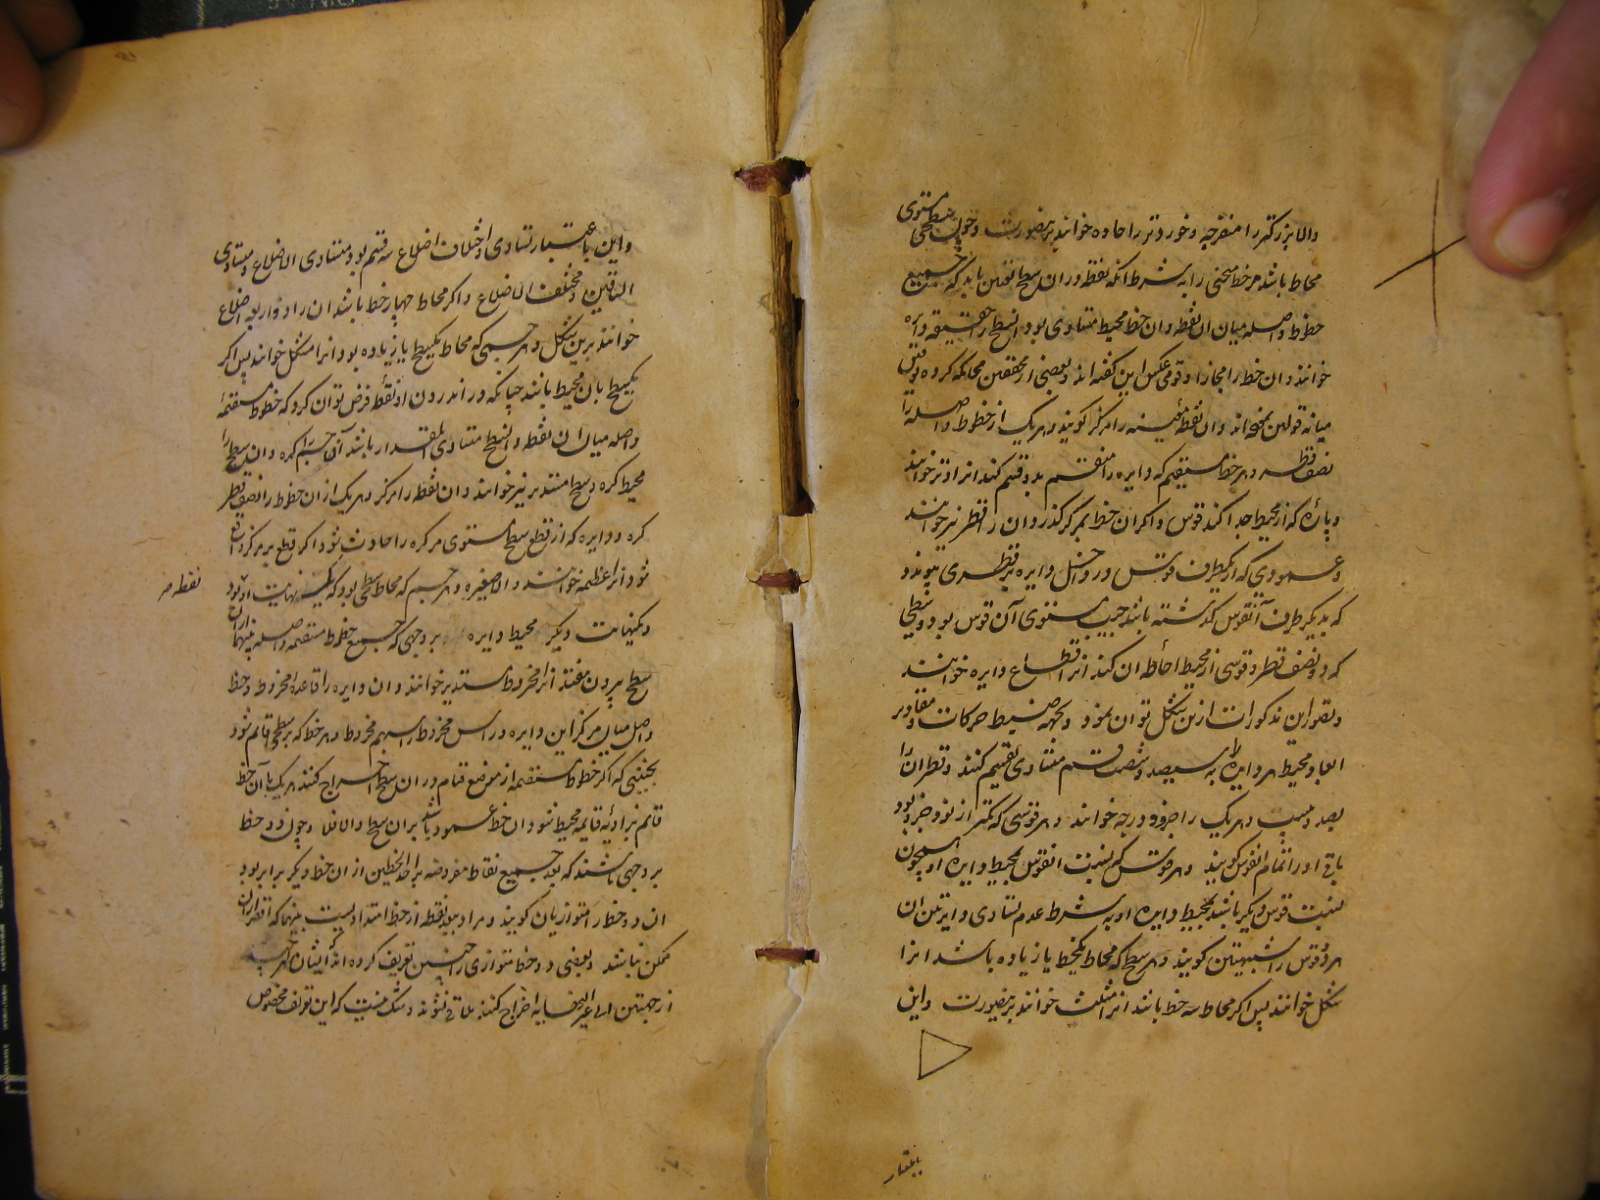 والا بزرکتر را منفرجه و خوردتر را حاده خوانند برینصورت و چون سطحی مستوی
محاط باشد هر خط منحنی را به شرط انکه نقطه در ان سطح یافتن باید که جمیع
خطوط واصله میان ان نقطه و ان خط محیط متساوی بود ان سطح را حقیقة دایره
خوانند و ان خط را مجازا و قومی عکس این کفته اند و بعضی از محققین محاکمه کرده توفیق
میانه قولین نموده اند و ان نقطه معینه را مرکز کویند و هر یک از خطوط واصله را
نصف قطر و هر خط مستقیم که دایره را منقسم بدو قسم کند انرا وتر خوانند
و پاره که از محیط جدا کند قوس و اکر ان خط بمرکز کذرد ان را قطر نیز خوانند
و عمودی که از یکطرف قوس در داخل دایره بر قطری پیوندد
که بدیکر طرف آن قوس کذشته باشد جیب مستوی آن قوس بود و سطحی
که دو نصف قطر و قوسی از محیط احاطه ان کند انرا قطاع دایره خوانند
و تصور این مذکورات ازین شکل توان نمود و بجهة ضبط حرکات و مقادیر
ابعاد محیط هر دایره را به سیصد و شصت قسم متساوی تقسیم کنند و قطر ان را
بصد و بیست و هر یک را جزو و درجه خوانند و هر قوسی که کمتر از نود جزو بود
باقی او را تمام ان قوس کویند و هر قوس که نسبت ان قوس بمحیط دایره او همچون
نسبت قوس دیکر باشد بمحیط دایره او به شرط عدم تساوی دایرتین ان
هر دو قوس را شبیهتین کویند و هر سطح که محاط بیکخط یا زیاده باشد انرا
شکل خوانند پس اکر محاط سه خط باشد انرا مثلث خوانند برینصورت و این
باعتبار
و این باعتبار تساوی و اختلاف اضلاع سه قسم بود متساوی الاضلاع و متساوی
الساقین و مختلف الاضلاع و اکر محاط چهار خط باشد ان را ذو اربعه اضلاع
خوانند برین شکل و هر جسمی که محاط بیکسطح یا زیاده بود انرا مشکل خوانند پس اکر
یکسطح بان محیط باشد چنانکه در اندرون او نقطه فرض توان کرد که خطوط مستقیمه
واصله میان ان نقطه و ان سطح متساوی المقدار باشد آن جسم را کره و ان سطح را
محیط کره و سطح مستدیر نیز خوانند و ان نقطه را مرکز و هر یک از ان خطوط را نصف قطر
کره و دایره که از قطع سطح مستوی مر کره را حادث شود اکر قطع بر مرکز کره
شود انرا عظیمه خوانند و الا صغیره و هر جسم که محاط سطحی بود که یک نهایت او بود
نقطه مر
و یک نهایت دیکر محیط دایره بر وجهی که جمیع خطوط مستقیمه واصله بینهما از ان
سطح بیرون نیفتد انرا مخروط مستدیر خوانند و ان دایره را قاعده مخروط و خط
واصل میان مرکز این دایره و راس مخروط را سهم مخروط و هر خط که بر سطحی قائم شود
بحیثیتی که اکر خطوط مستقیمه از موضع قیام در ان سطح اخراج کنند هر یک با آن خط
قائم بزاویه قایمه محیط شود ان خط عمود باشد بر ان سطح و الا فلا و چون دو خط
بر وجهی باشند که بعد جمیع نقاط مفروضه بر احد الخطین از ان خط دیکر برابر بود
ان دو خط را متوازیان کویند و مراد ببعد نقطه از خط امتدادیست بینهما که اقصر از ان
ممکن نباشد و بعضی دو خط متوازی را چنین تعریف کرده اند که ایشان هر چند
از جهتین الی غیر النهایه اخراج کنند ملاقی نشوند و شک نیست که این تعریف مخصوص